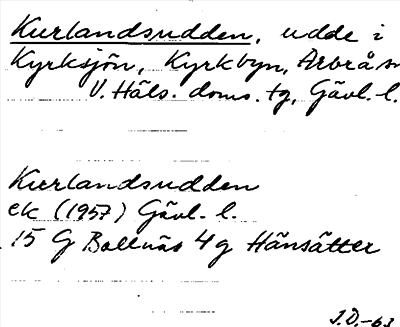 Kurlandsudden, udde i
Kyrksjön, Kyrkbyn, Arbrå sn
V. Häls. doms. tg, Gävl. l.
Kurlandsudden
ek (1957) Gävl. l.
15 G Bollnäs 4 g Hänsätter
J.D.-63